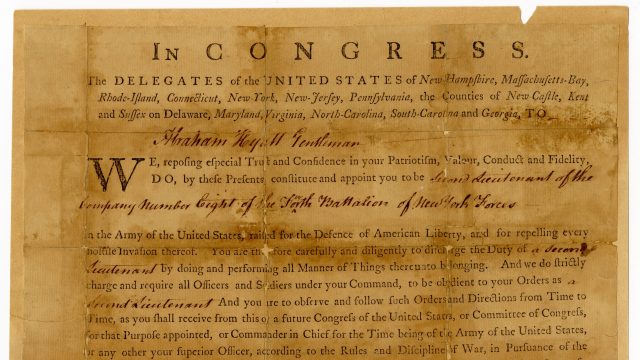 IN CONGRESS.
The DELEGATES of the UNITED STATES of New-Hampſhire, Maſſachuſetts-Bay,
Rhode-Iſland, Connecticut, New-York, New-Jerſey, Pennſylvania, the Counties of New-Caſtle, Kent
and Suſſex on Delaware, Maryland, Virginia, North-Carolina, South-Carolina and Georgia, TO
Abraham Hyatt Gentleman
WE, repoſing eſpecial Truſt and Confidence in your Patriotiſm, Valour, Conduct and Fidelity,
DO, by theſe Preſents conſtitute and appoint you to be Second Lieutenant of the
Company Number Eight of the Forth Battalion of New York Forces
in the Army of the United States, raiſed for the Defence of American Liberty, and for repelling every
hoſtile Invaſion thereof. You are therefore carefully and diligently to diſcharge the Duty of a Second
Lieutenant by doing and performing all Manner of Things thereunto belonging. And we do ſtrictly
charge and require all Officers and Soldiers under your Command, to be obedient to your Orders as a
Second Lieutenant And you are to obſerve and follow ſuch Orders and Directions from Time to
Time, as you ſhall receive from this or a future Congreſs of the United States, or Committee of Congreſs,
for that Purpoſe appointed, or Commander in Chief for the Time being of the Army of the United States,
or any other your ſuperior Officer, according to the Rules and Diſcipline of War, in Purſuance of the